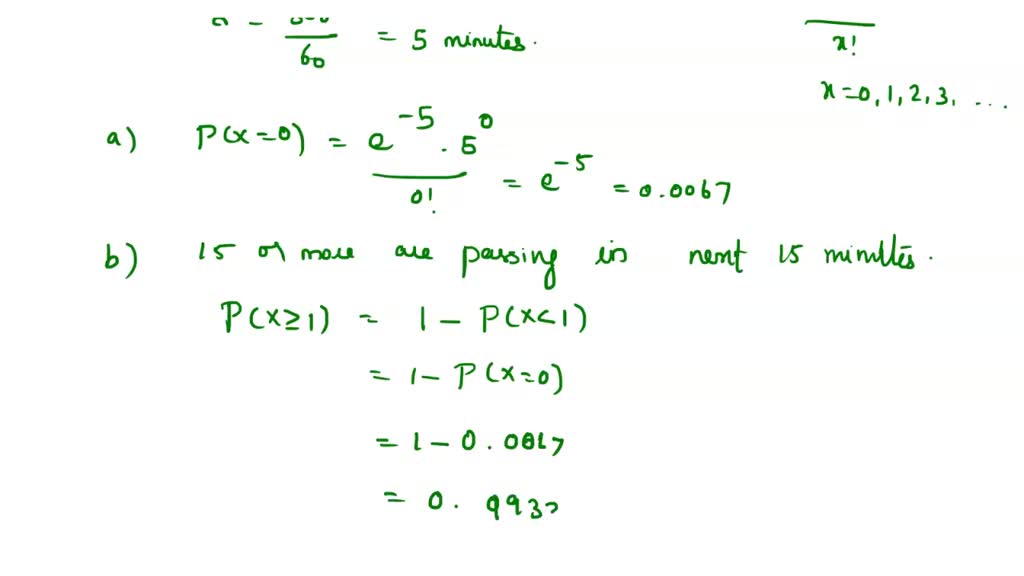 60 = 5 minutes.
x!
x=0, 1, 2, 3, ...
a) P(x=0) = e^-5 . 5^0 / 0! = e^-5 = 0.0067
b) 15 or more are passing in next 15 minutes.
P(x≥1) = 1 - P(x<1)
= 1 - P(x=0)
= 1 - 0.0067
= 0.9933